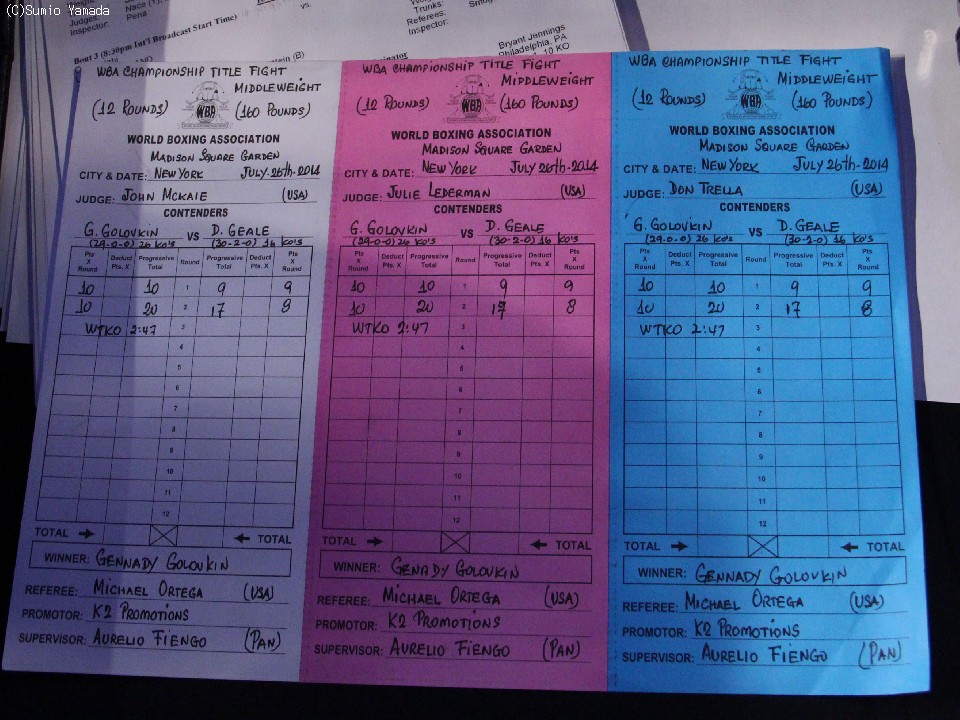 (C)Sumio Yamada
Judges:
Inspector:
Pena
vs.
Trunks:
Referees:
Inspector:
Bout 3 (8:30pm Int'l Broadcast Start Time)
(B)
Bryant Jennings
Philadelphia, PA
10 KO
WBA CHAMPIONSHIP TITLE FIGHT
MIDDLEWEIGHT
(12 ROUNDS) WBA (160 POUNDS)
WORLD BOXING ASSOCIATION
MADISON SQUARE GARDEN
CITY & DATE: NEW YORK JULY-26th-2014
JUDGE: JOHN MCKAIE (USA)
CONTENDERS
G. GOLOVKIN VS D. GEALE
(29-0-0) 26 KO'S (30-2-0) 16 KO'S
Pts X Round Deduct Pts. X Progressive Total Round Progressive Total Deduct Pts. X Pts X Round
10 10 1 9 9
10 20 2 17 8
WTKO 2:47 3
4
5
6
7
8
9
10
11
12
TOTAL TOTAL
WINNER: GENNADY GOLOVKIN
REFEREE: MICHAEL ORTEGA (USA)
PROMOTOR: K2 PROMOTIONS
SUPERVISOR: AURELIO FIENGO (PAN)
WBA CHAMPIONSHIP TITLE FIGHT
MIDDLEWEIGHT
(12 ROUNDS) WBA (160 POUNDS)
WORLD BOXING ASSOCIATION
MADISON SQUARE GARDEN
CITY & DATE: NEW YORK JULY 26th-2014
JUDGE: JULIE LEDERMAN (USA)
CONTENDERS
G. GOLOVKIN VS D. GEALE
(29-0-0) 26 KO'S (30-2-0) 16 KO'S
Pts X Round Deduct Pts. X Progressive Total Round Progressive Total Deduct Pts. X Pts X Round
10 10 1 9 9
10 20 2 17 8
WTKO 2:47 3
4
5
6
7
8
9
10
11
12
TOTAL TOTAL
WINNER: GENADY GOLOVKIN
REFEREE: MICHAEL ORTEGA (USA)
PROMOTOR: K2 PROMOTIONS
SUPERVISOR: AURELIO FIENGO (PAN)
WBA CHAMPIONSHIP TITLE FIGHT
MIDDLEWEIGHT
(12 ROUNDS) WBA (160 POUNDS)
WORLD BOXING ASSOCIATION
MADISON SQUARE GARDEN
CITY & DATE: NEW YORK JULY 26th-2014
JUDGE: DON TRELLA (USA)
CONTENDERS
G. GOLOVKIN VS D. GEALE
(29-0-0) 26 KO'S (30-2-0) 16 KO'S
Pts X Round Deduct Pts. X Progressive Total Round Progressive Total Deduct Pts. X Pts X Round
10 10 1 9 9
10 20 2 17 8
WTKO 2:47 3
4
5
6
7
8
9
10
11
12
TOTAL TOTAL
WINNER: GENNADY GOLOVKIN
REFEREE: MICHAEL ORTEGA (USA)
PROMOTOR: K2 PROMOTIONS
SUPERVISOR: AURELIO FIENGO (PAN)